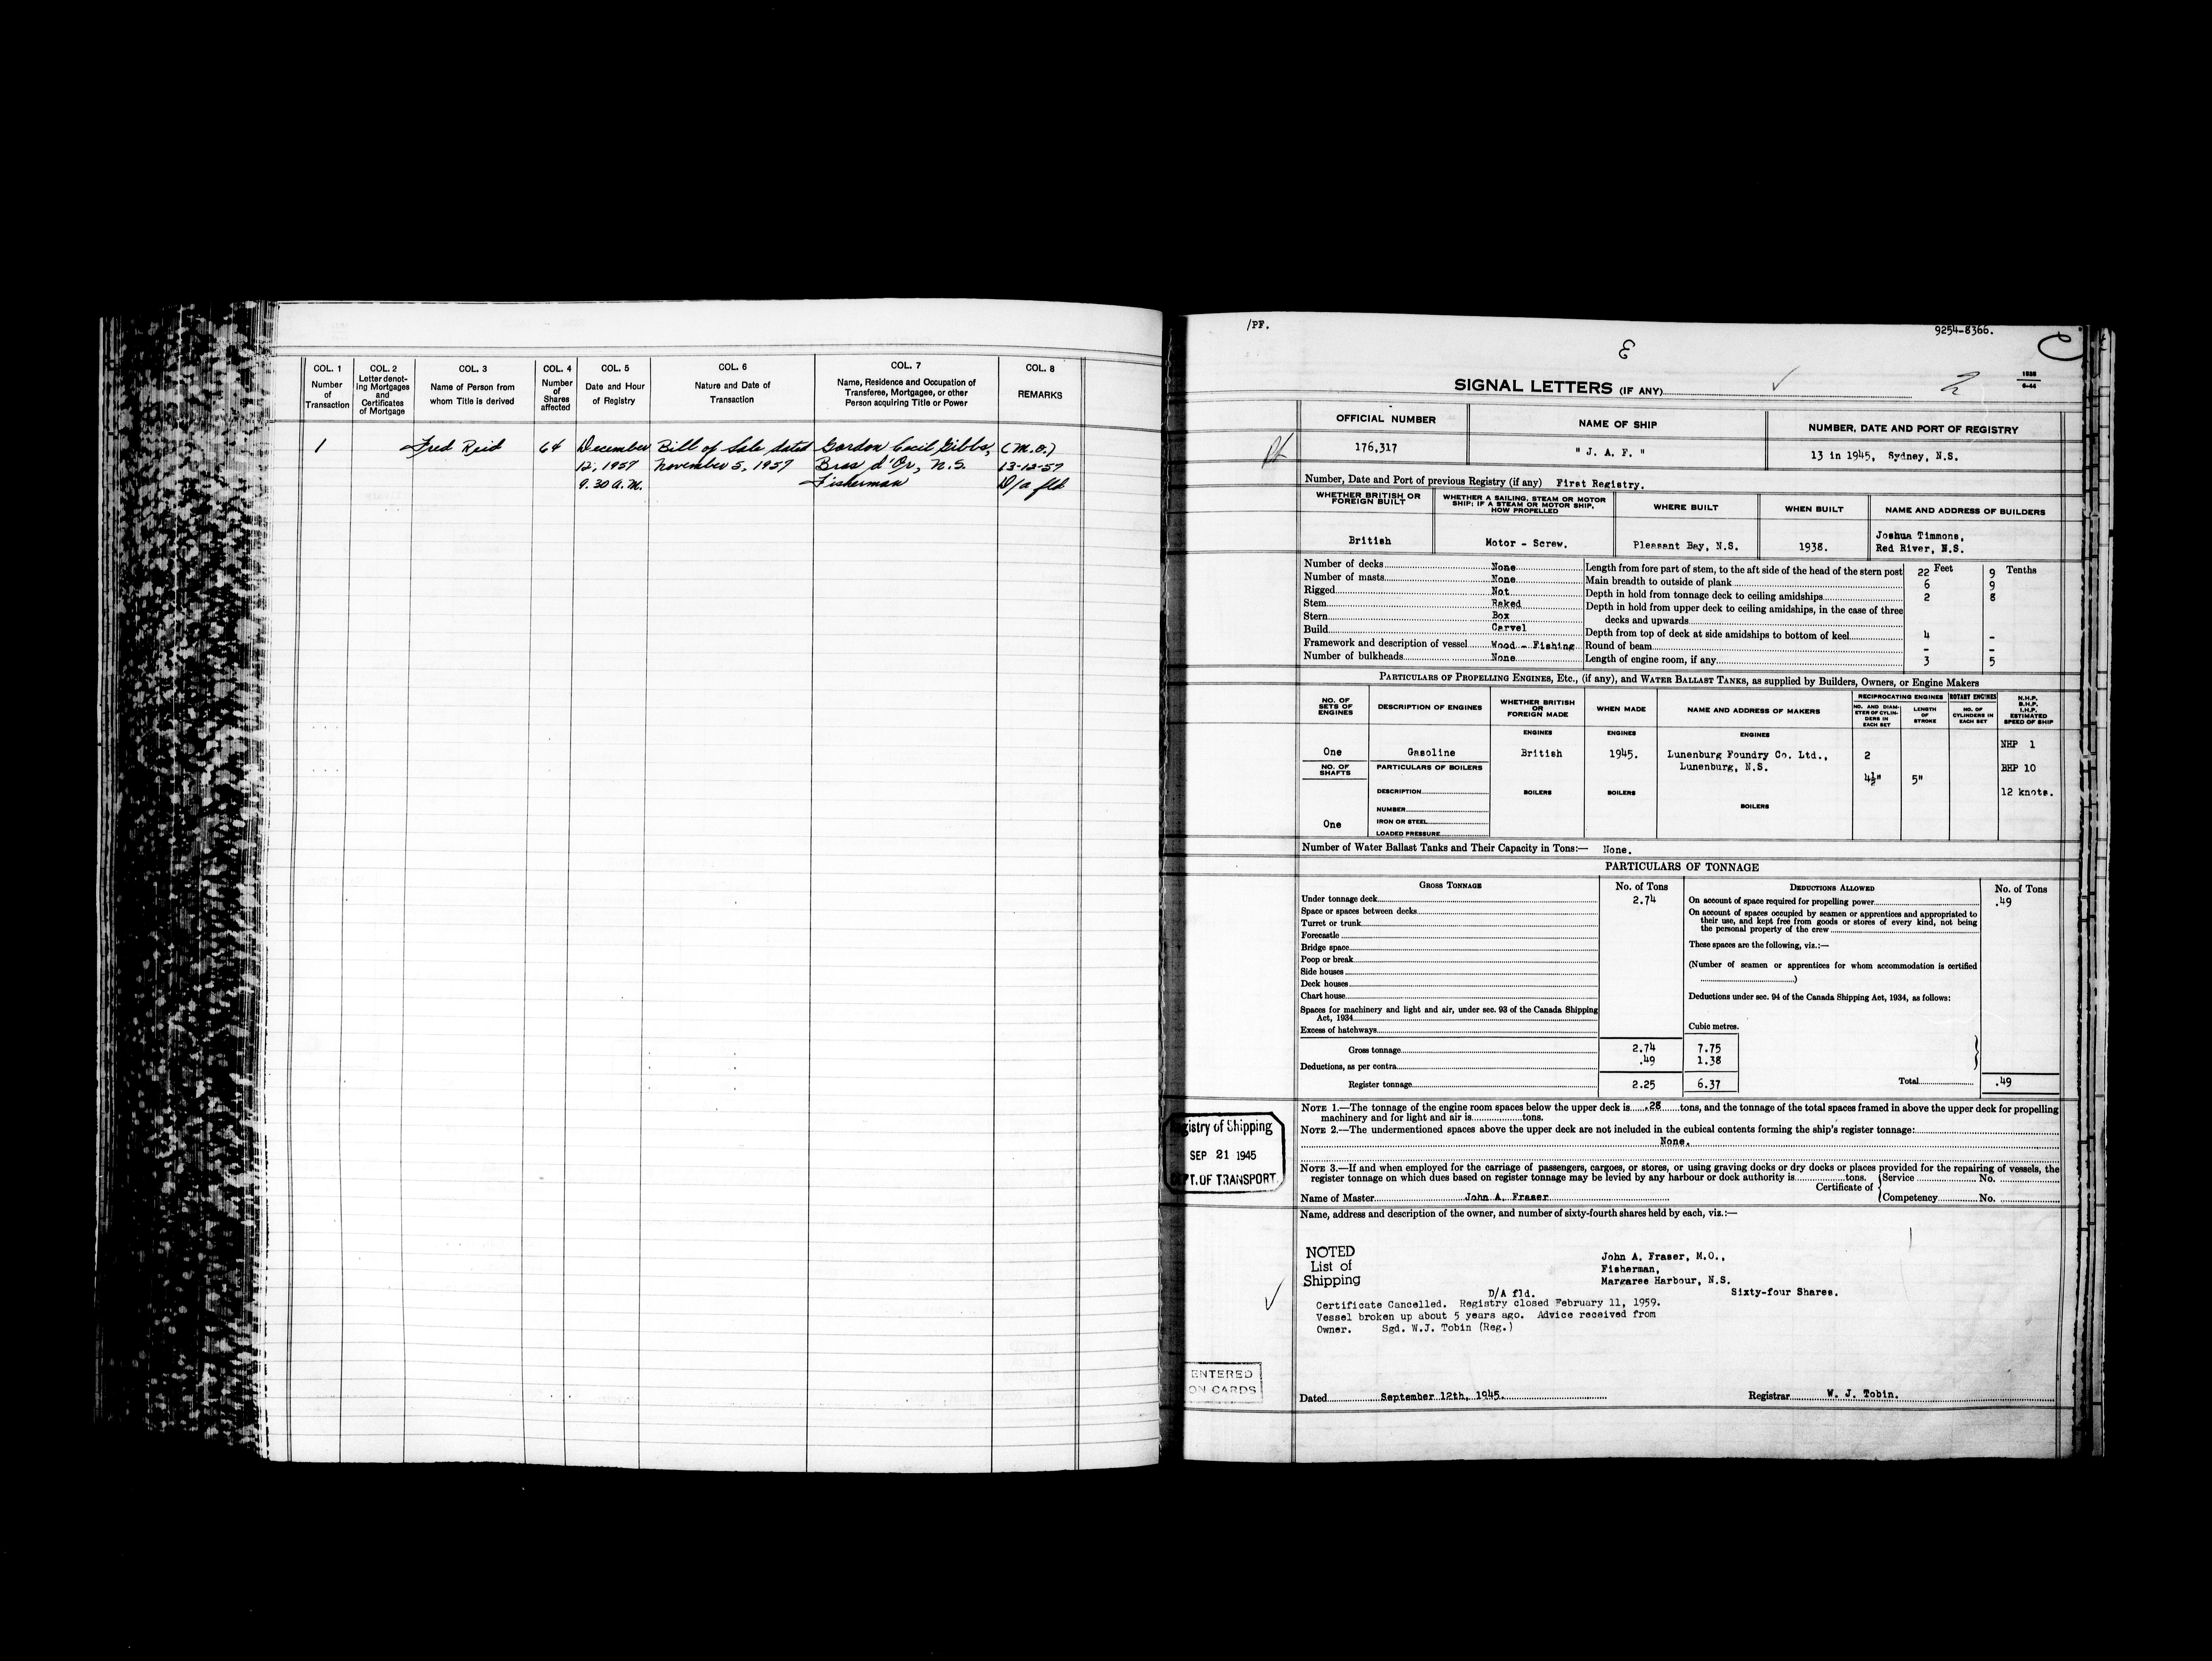 COL. 1
Number
of
Transaction
COL. 2
Letter denot-
ing Mortgages
and
Certificates
of Mortgage
COL. 3
Name of Person from
whom Title is derived
COL. 4
Number
of
Shares
affected
COL. 5
Date and Hour
of Registry
COL. 6
Nature and Date of
Transaction
COL. 7
Name, Residence and Occupation of
Transferee, Mortgagee, or other
Person acquiring Title or Power
COL. 8
REMARKS
1 Fred Reid 64 December Bill of Sale dated Gordon Cecil Gibbs, (M.O.)
12, 1957 November 5, 1957 Bras d'Or, N.S. 13-12-57
9.30 A.M. Fisherman D/a fld
/PF.
9254-8366.
SIGNAL LETTERS (IF ANY)
OFFICIAL NUMBER
NAME OF SHIP
NUMBER, DATE AND PORT OF REGISTRY
176,317
" J. A. F. "
13 in 1945, Sydney, N.S.
Number, Date and Port of previous Registry (if any) First Registry.
WHETHER BRITISH OR
FOREIGN BUILT
WHETHER A SAILING, STEAM OR MOTOR
SHIP; IF A STEAM OR MOTOR SHIP,
HOW PROPELLED
WHERE BUILT
WHEN BUILT
NAME AND ADDRESS OF BUILDERS
British
Motor - Screw.
Pleasant Bay, N.S.
1938.
Joshua Timmons,
Red River, N.S.
Number of decks None
Number of masts None
Rigged Not
Stem Raked
Stern Box
Build Carvel
Framework and description of vessel Wood - Fishing
Number of bulkheads None
Feet Tenths
Length from fore part of stem, to the aft side of the head of the stern post 22 9
Main breadth to outside of plank 6 9
Depth in hold from tonnage deck to ceiling amidships 2 8
Depth in hold from upper deck to ceiling amidships, in the case of three
decks and upwards
Depth from top of deck at side amidships to bottom of keel 4 -
Round of beam - -
Length of engine room, if any 3 5
PARTICULARS OF PROPELLING ENGINES, ETC., (if any), and WATER BALLAST TANKS, as supplied by Builders, Owners, or Engine Makers
NO. OF
SETS OF
ENGINES
DESCRIPTION OF ENGINES
WHETHER BRITISH
OR
FOREIGN MADE
WHEN MADE
NAME AND ADDRESS OF MAKERS
RECIPROCATING ENGINES
NO. AND DIAM-
ETER OF CYLIN-
DERS IN
EACH SET
LENGTH
OF
STROKE
ROTARY ENGINES
NO. OF
CYLINDERS IN
EACH SET
N.H.P.
B.H.P.
I.H.P.
ESTIMATED
SPEED OF SHIP
ENGINES ENGINES ENGINES
One Gasoline British 1945. Lunenburg Foundry Co. Ltd., 2 NHP 1
Lunenburg, N.S.
NO. OF
SHAFTS
PARTICULARS OF BOILERS
4½" 5" BHP 10
DESCRIPTION BOILERS BOILERS 12 knots.
NUMBER BOILERS
IRON OR STEEL
LOADED PRESSURE
One
Number of Water Ballast Tanks and Their Capacity in Tons:— None.
PARTICULARS OF TONNAGE
GROSS TONNAGE
No. of Tons
DEDUCTIONS ALLOWED
No. of Tons
Under tonnage deck 2.74
Space or spaces between decks
Turret or trunk
Forecastle
Bridge space
Poop or break
Side houses
Deck houses
Chart house
Spaces for machinery and light and air, under sec. 93 of the Canada Shipping
Act, 1934
Excess of hatchways
Cubic metres.
Gross tonnage 2.74 7.75
Deductions, as per contra .49 1.38
Register tonnage 2.25 6.37
On account of space required for propelling power .49
On account of spaces occupied by seamen or apprentices and appropriated to
their use, and kept free from goods or stores of every kind, not being
the personal property of the crew
These spaces are the following, viz.:—
(Number of seamen or apprentices for whom accommodation is certified
)
Deductions under sec. 94 of the Canada Shipping Act, 1934, as follows:
Total .49
NOTE 1.—The tonnage of the engine room spaces below the upper deck is .28 tons, and the tonnage of the total spaces framed in above the upper deck for propelling
machinery and for light and air is tons.
NOTE 2.—The undermentioned spaces above the upper deck are not included in the cubical contents forming the ship's register tonnage:
None.
NOTE 3.—If and when employed for the carriage of passengers, cargoes, or stores, or using graving docks or dry docks or places provided for the repairing of vessels, the
register tonnage on which dues based on register tonnage may be levied by any harbour or dock authority is tons.
Certificate of
Service No.
Competency No.
Name of Master John A. Fraser
gistry of Shipping
SEP 21 1945
PT. OF TRANSPORT
Name, address and description of the owner, and number of sixty-fourth shares held by each, viz.:—
NOTED
List of
Shipping
John A. Fraser, M.O.,
Fisherman,
Margaree Harbour, N.S.
D/A fld. Sixty-four Shares.
Certificate Cancelled. Registry closed February 11, 1959.
Vessel broken up about 5 years ago. Advice received from
Owner. Sgd. W.J. Tobin (Reg.)
ENTERED
ON CARDS
Dated September 12th, 1945.
Registrar W. J. Tobin.